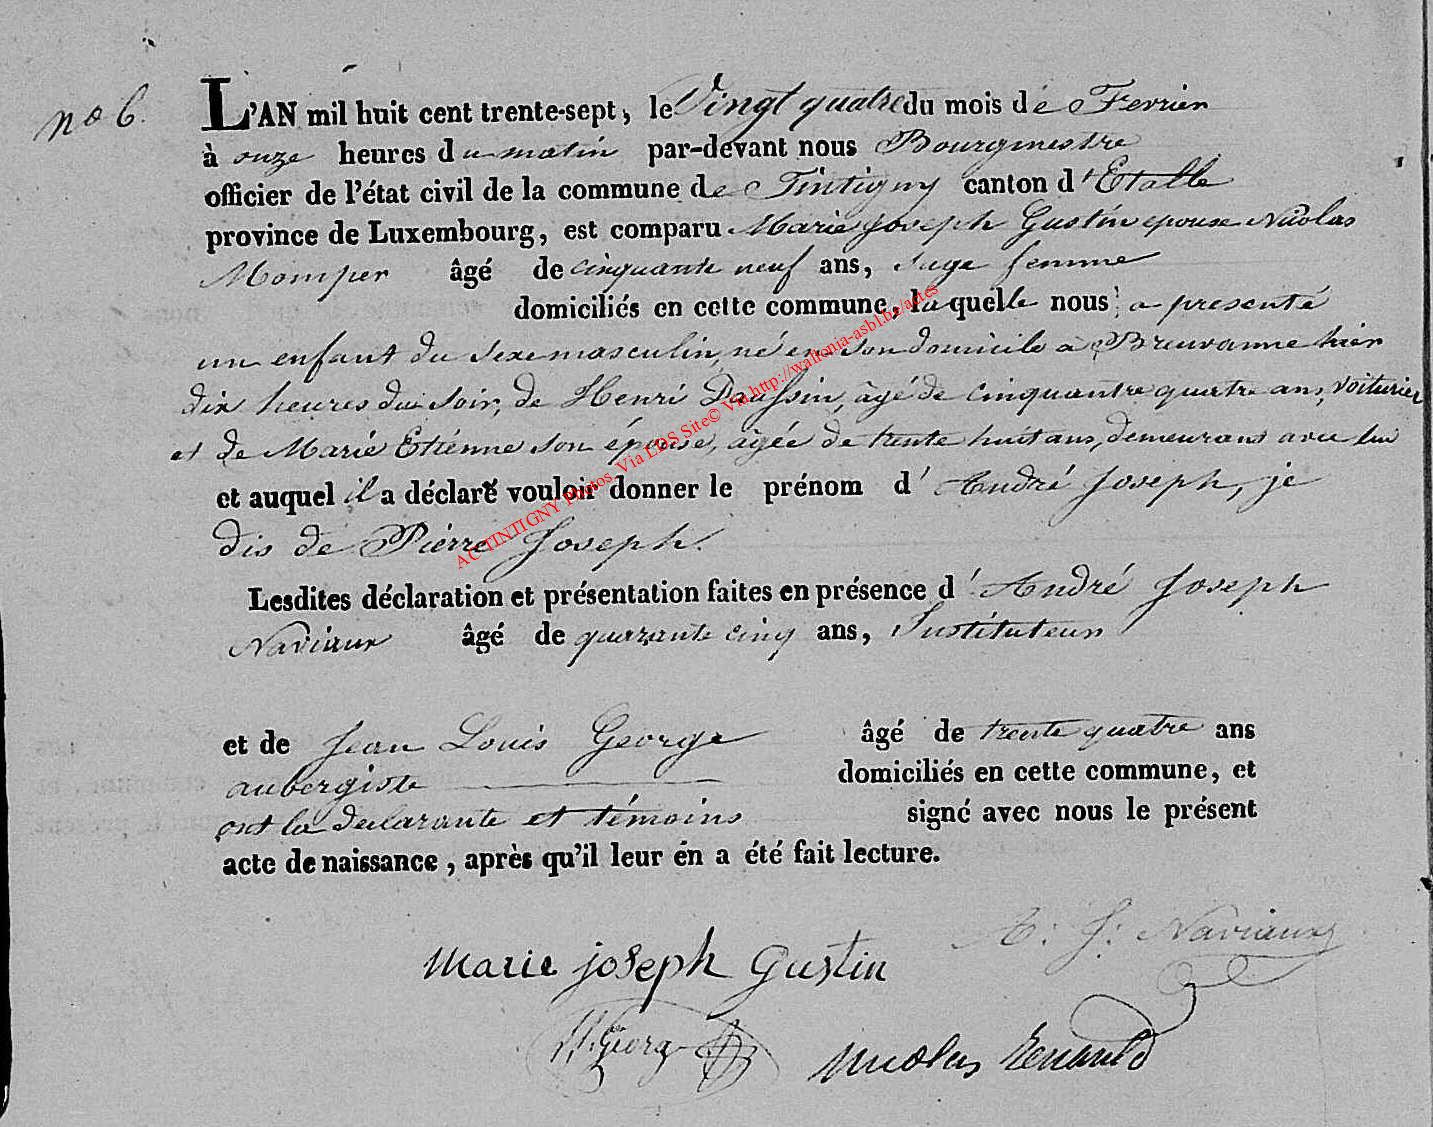 no 6.
L'AN mil huit cent trente-sept, le Vingt quatre du mois de Fevrier
à onze heures du matin par-devant nous Bourgmestre
officier de l'état civil de la commune de Tintigny canton d'Etalle
province de Luxembourg, est comparu Marie Joseph Gustin epouse Nicolas
Momper âgé de cinquante neuf ans, sage femme
domiciliés en cette commune, laquelle nous a presenté
un enfant du sexe masculin, né en son domicile a Breuvanne hier
dix heures du soir, de Henri Daussin, âgé de cinquantre quatre ans, voiturier
et de Marie Etienne son épouse, âgée de trente huit ans, demeurans avec lui
et auquel il a déclaré vouloir donner le prénom d'André Joseph, je
dis de Piérre Joseph.
Lesdites déclaration et présentation faites en présence d'André Joseph
Naviaux âgé de quarante cinq ans, Instituteur
et de Jean Louis George âgé de trente quatre ans
aubergiste domiciliés en cette commune, et
ont la declarante et témoins signé avec nous le présent
acte de naissance, après qu'il leur en a été fait lecture.
A. J. Naviaux
Marie joseph Gustin
George
Nicolas Renauld
ACTINTIGNY Photos Via LDS Site© Via http://wallonia-asbl.be/actes